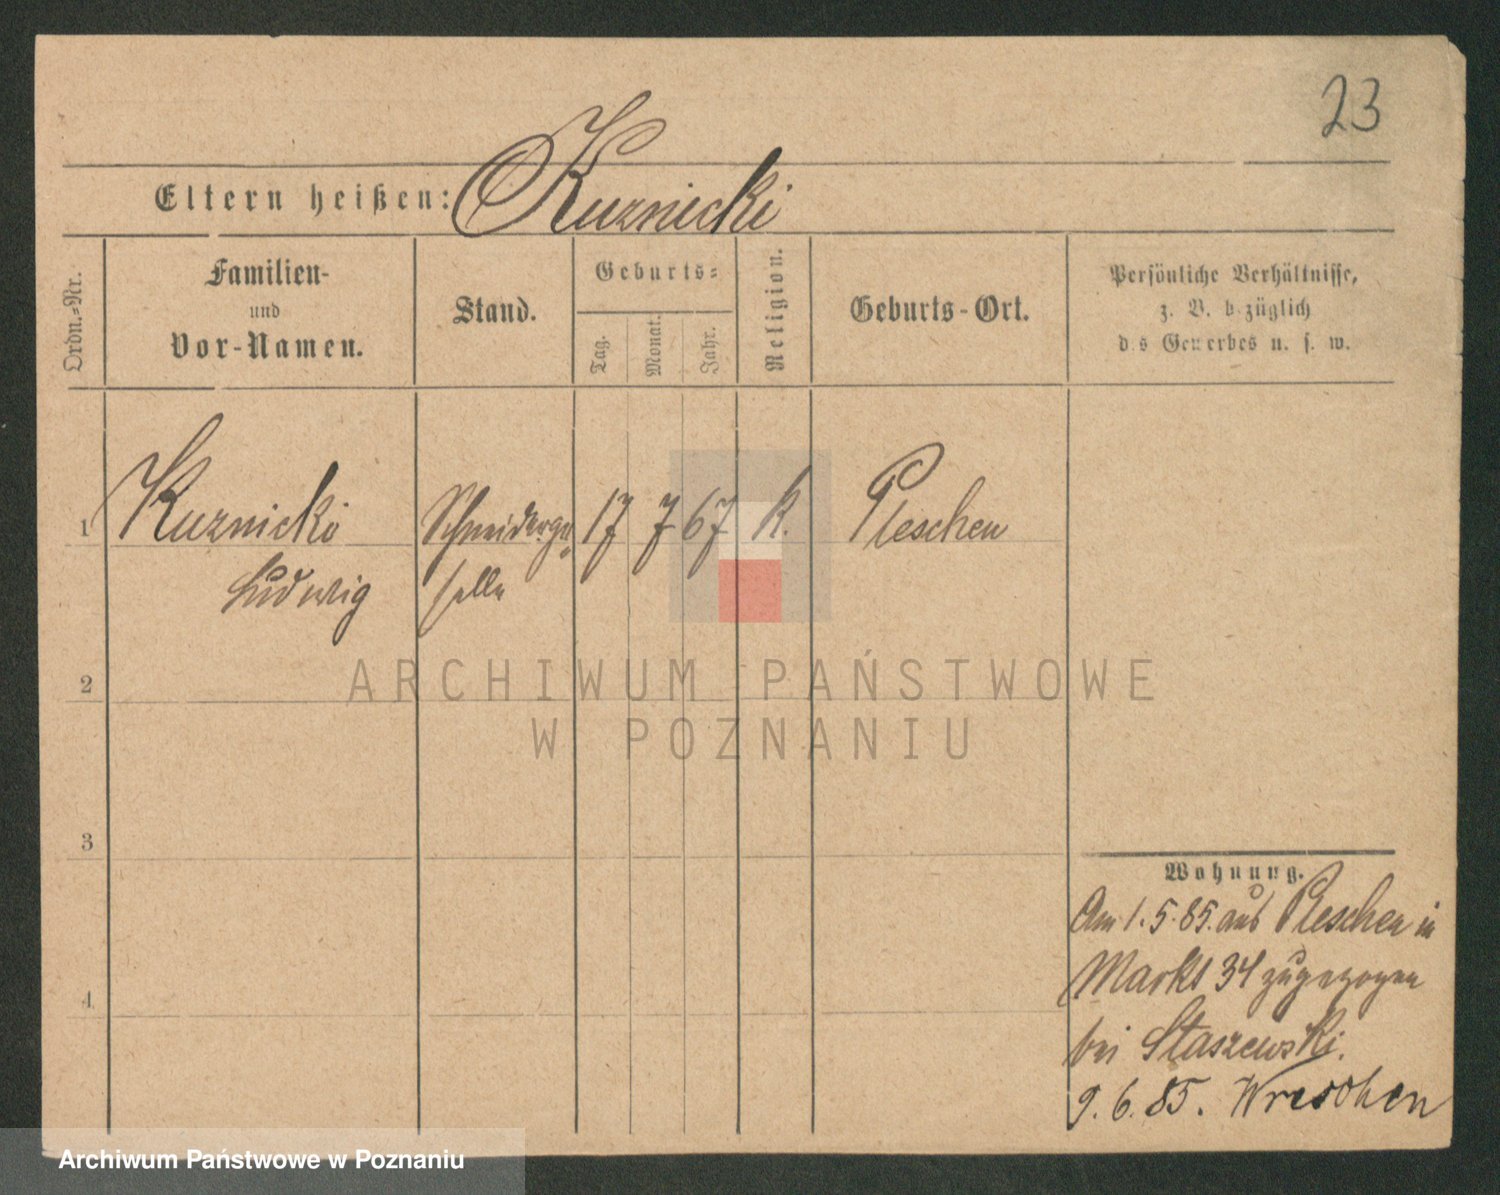 23
Eltern heißen: Kuznicki
Ordn.-Nr.
Familien-
und
Vor-Namen.
Stand.
Geburts-
Tag.
Monat.
Jahr.
Religion.
Geburts-Ort.
Persönliche Verhältnisse,
z. B. bezüglich
des Gewerbes u. s. w.
1 Kuznicki Schneiderge= 17 7 67 k. Pleschen
Ludwig selle
2
3
4
Wohnung.
Am 1.5.85. aus Pleschen in
Markt 34 zugezogen
bei Staszewski.
9.6.85. Wreschen
ARCHIWUM PAŃSTWOWE
W POZNANIU
Archiwum Państwowe w Poznaniu